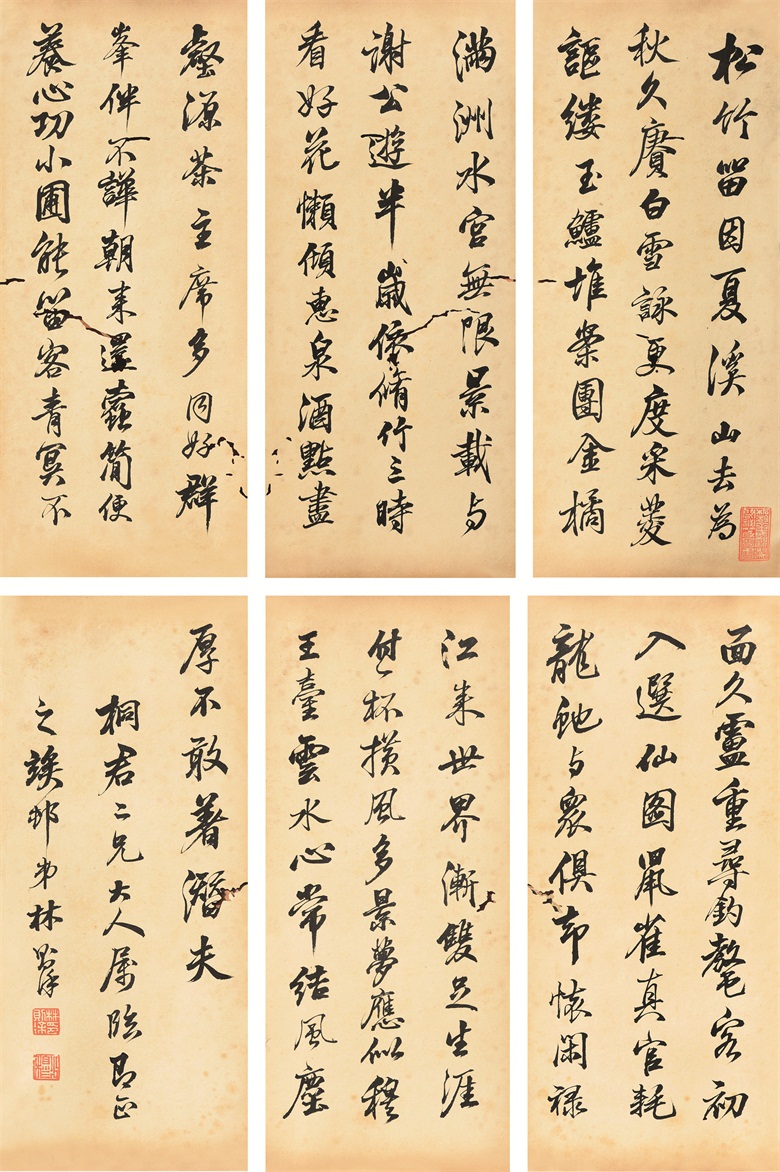 松竹留因夏溪山去為
秋久賡白雪詠更度采菱
謳縷玉鱸堆案團金橘
滿洲水宮無限景載与
謝公遊半歲依脩竹三時
看好花懶傾惠泉酒點盡
壑源茶主席多同好群
峯伴不譁朝來還蠹簡便
養心功小圃能留客青冥不
面久盧重尋釣鰲客初
入選仙圖鼠雀真官耗
龍虵与眾俱却懷閑祿
江來世界漸雙足生涯
付一杯橫風多景夢應似穆
王臺雲水心常結風塵
厚不敢著潛夫
桐君二兄大人属臨即正
之竢邨弟林則徐